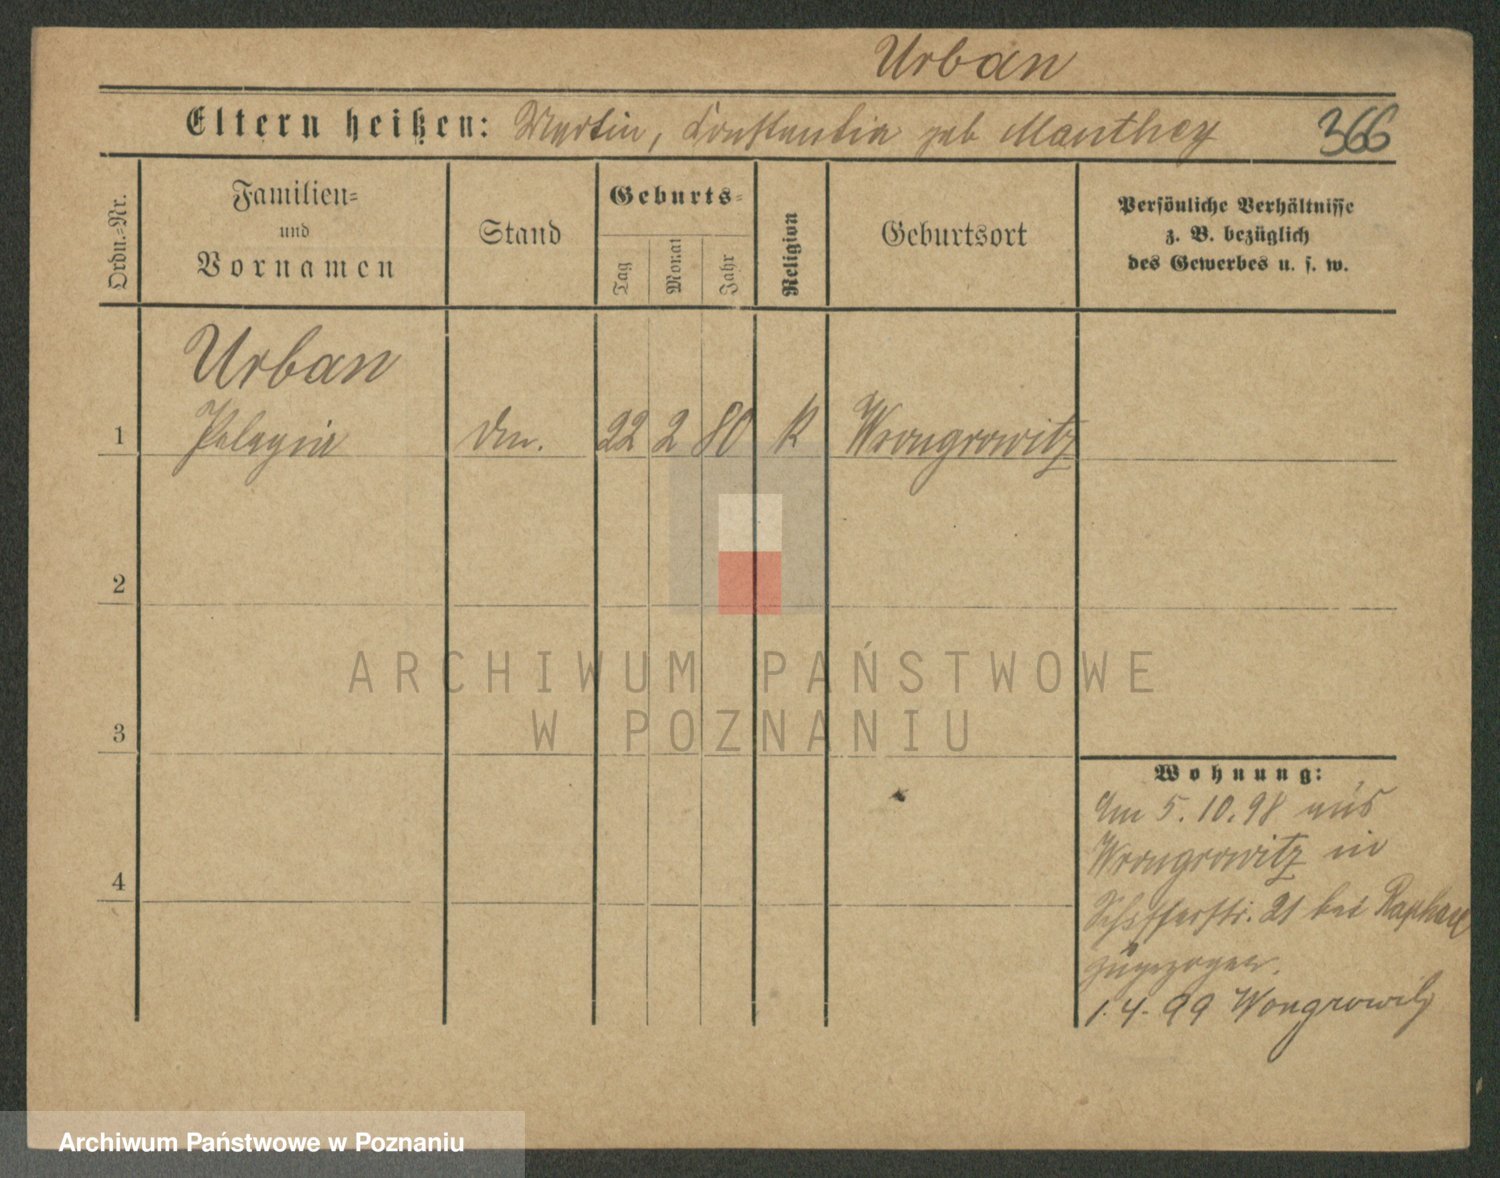 Urban
Eltern heißen: Martin, Constantia geb Manthey 366
Ordn.=Nr.
Familien=
und
Vornamen
Stand
Geburts=
Tag
Monat
Jahr
Religion
Geburtsort
Persönliche Verhältnisse
z. B. bezüglich
des Gewerbes u. s. w.
Urban
1 Pelagia 22 2 80 k Wrongrowitz
2
3
4
ARCHIWUM PAŃSTWOWE
W POZNANIU
Wohnung:
Am 5.10.98 aus
Wrongrowitz in
Schifferstr. 21 bei Raphael
zugezogen.
1.4.99 Wongrowitz
Archiwum Państwowe w Poznaniu